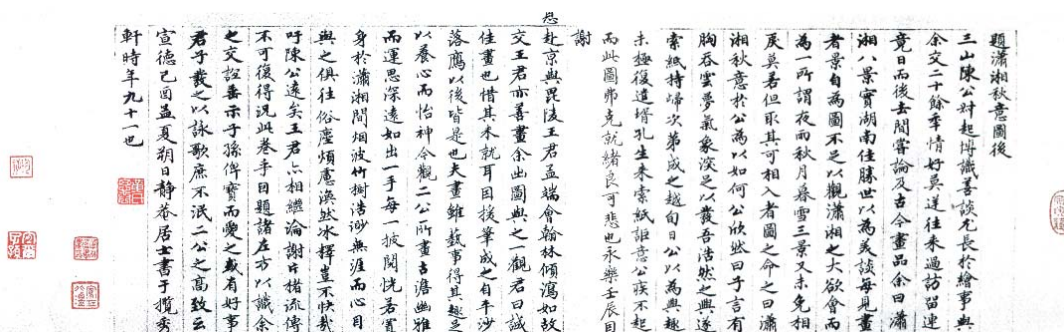 題瀟湘秋意圖後
三山陳公叔起博識善談尤長於繪事與
余交二十餘年情好莫逆往來過訪留連
竟日而後去閒嘗論及古今畫品余曰瀟
湘八景實湖南佳勝世以為美談每見畫
者景自為圖不足以觀瀟湘之大欲會而
為一所謂夜雨秋月暮雪三景又未免相
戾莫若但取其可相入者圖之命之曰瀟
湘秋意於公為以如何公欣然曰子言有
胸吞雲夢氣象深足以發吾浩然之興遂
索紙持歸次第成之越旬日公以為興趣
未極復遣壻孔生來索紙詎意公疾不起
而此圖弗克就緒良可悲也永樂壬辰自
謝
恩赴京與毘陵王君孟端會翰林傾瀉如故
交王君亦善畫余出圖與之一觀君曰誠
佳畫也惜其未就耳因援筆成之自平沙
落鴈以後皆是也夫畫雖藝事得其趣足
以養心而怡神今觀二公所畫古澹幽雅
而運思深遠如出一手每一披閱恍若置
身於瀟湘間烟波竹樹浩渺無涯而心目
與之俱往俗塵煩慮渙然冰釋豈不快哉
吁陳公遠矣王君亦相繼淪謝片楮流傳
不可復得況此卷乎因題諸左方以識余
之交誼垂示子孫俾寶而愛之或有好事
君子載之以詠歌庶不泯二公之高致云
宣德己酉孟夏朔日靜菴居士書于攬秀
軒時年九十一也